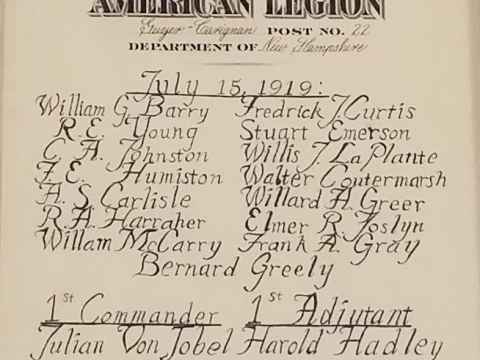 AMERICAN LEGION
Guyer-Carignan POST NO. 22
DEPARTMENT OF New Hampshire
July 15, 1919:
William G. Barry Fredrick J. Curtis
R. E. Young Stuart Emerson
C. A. Johnston Willis J. La Plante
F. E. Humiston Walter Coutermarsh
A. S. Carlisle Willard H. Greer
R. A. Harraher Elmer R. Joslyn
Willam McCarry Frank A. Gray
Bernard Greely
1st Commander 1st Adjutant
Julian Von Jobel Harold Hadley